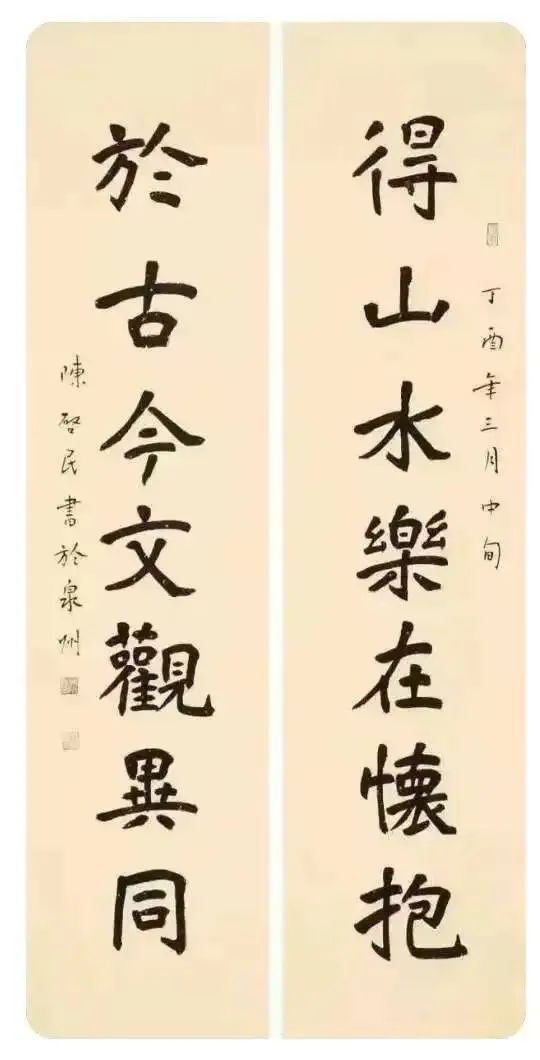 丁酉年三月中旬
得山水樂在懷抱
於古今文觀異同
陳啓民書於泉州